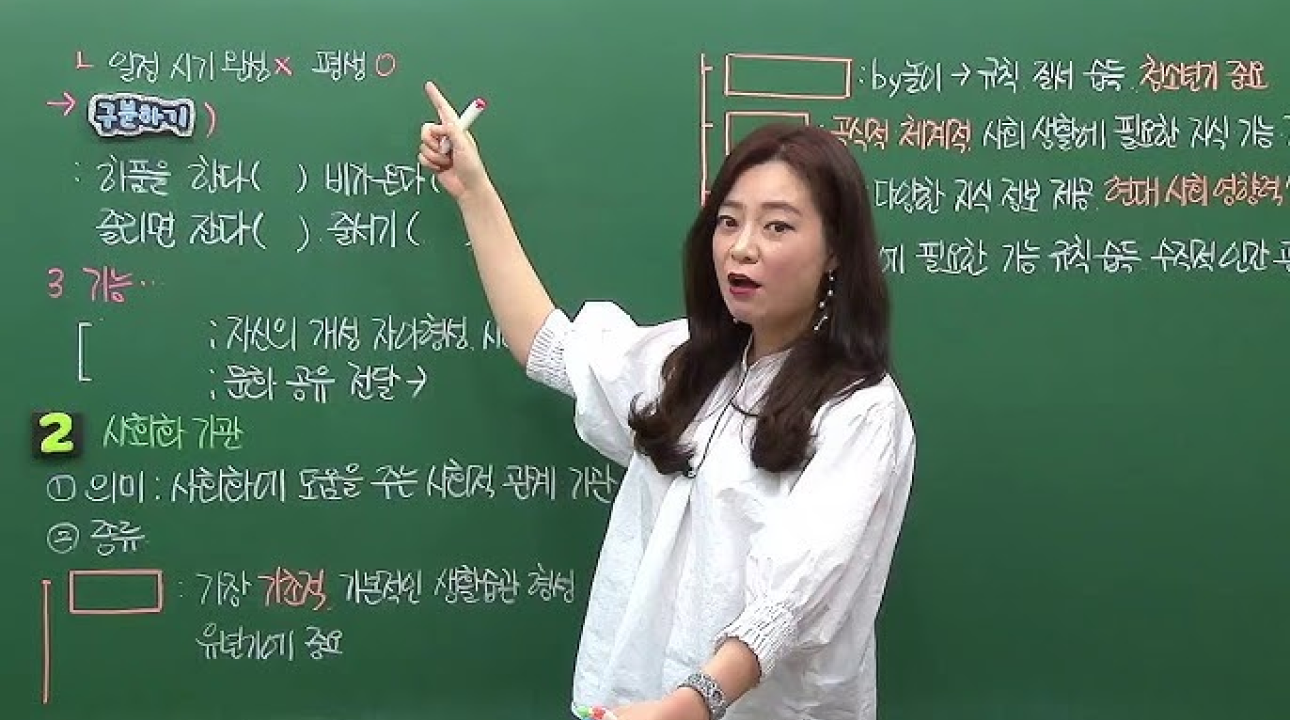 ㄴ 일정 시기 완성 x 평생 O
→ 구분하기 )
: 하품을 한다( ) 비가 온다(
졸리면 잔다( ) 줄서기 (
3 기능..
[ : 자신의 개성 자아형성.
: 문화 공유 전달 →
2 사회화 기관
① 의미 : 사회화에 도움을 주는 사회적 관계 기관
② 종류
: 가장 기초적, 기본적인 생활습관 형성
유년기에 중요
: by놀이 → 규칙 질서 습득. 청소년기 중요
: 공식적 체계적, 사회 생활에 필요한 지식 기능
다양한 지식 정보 제공. 현대 사회 영향력
에 필요한 기능 규칙 습득. 수직적 인간